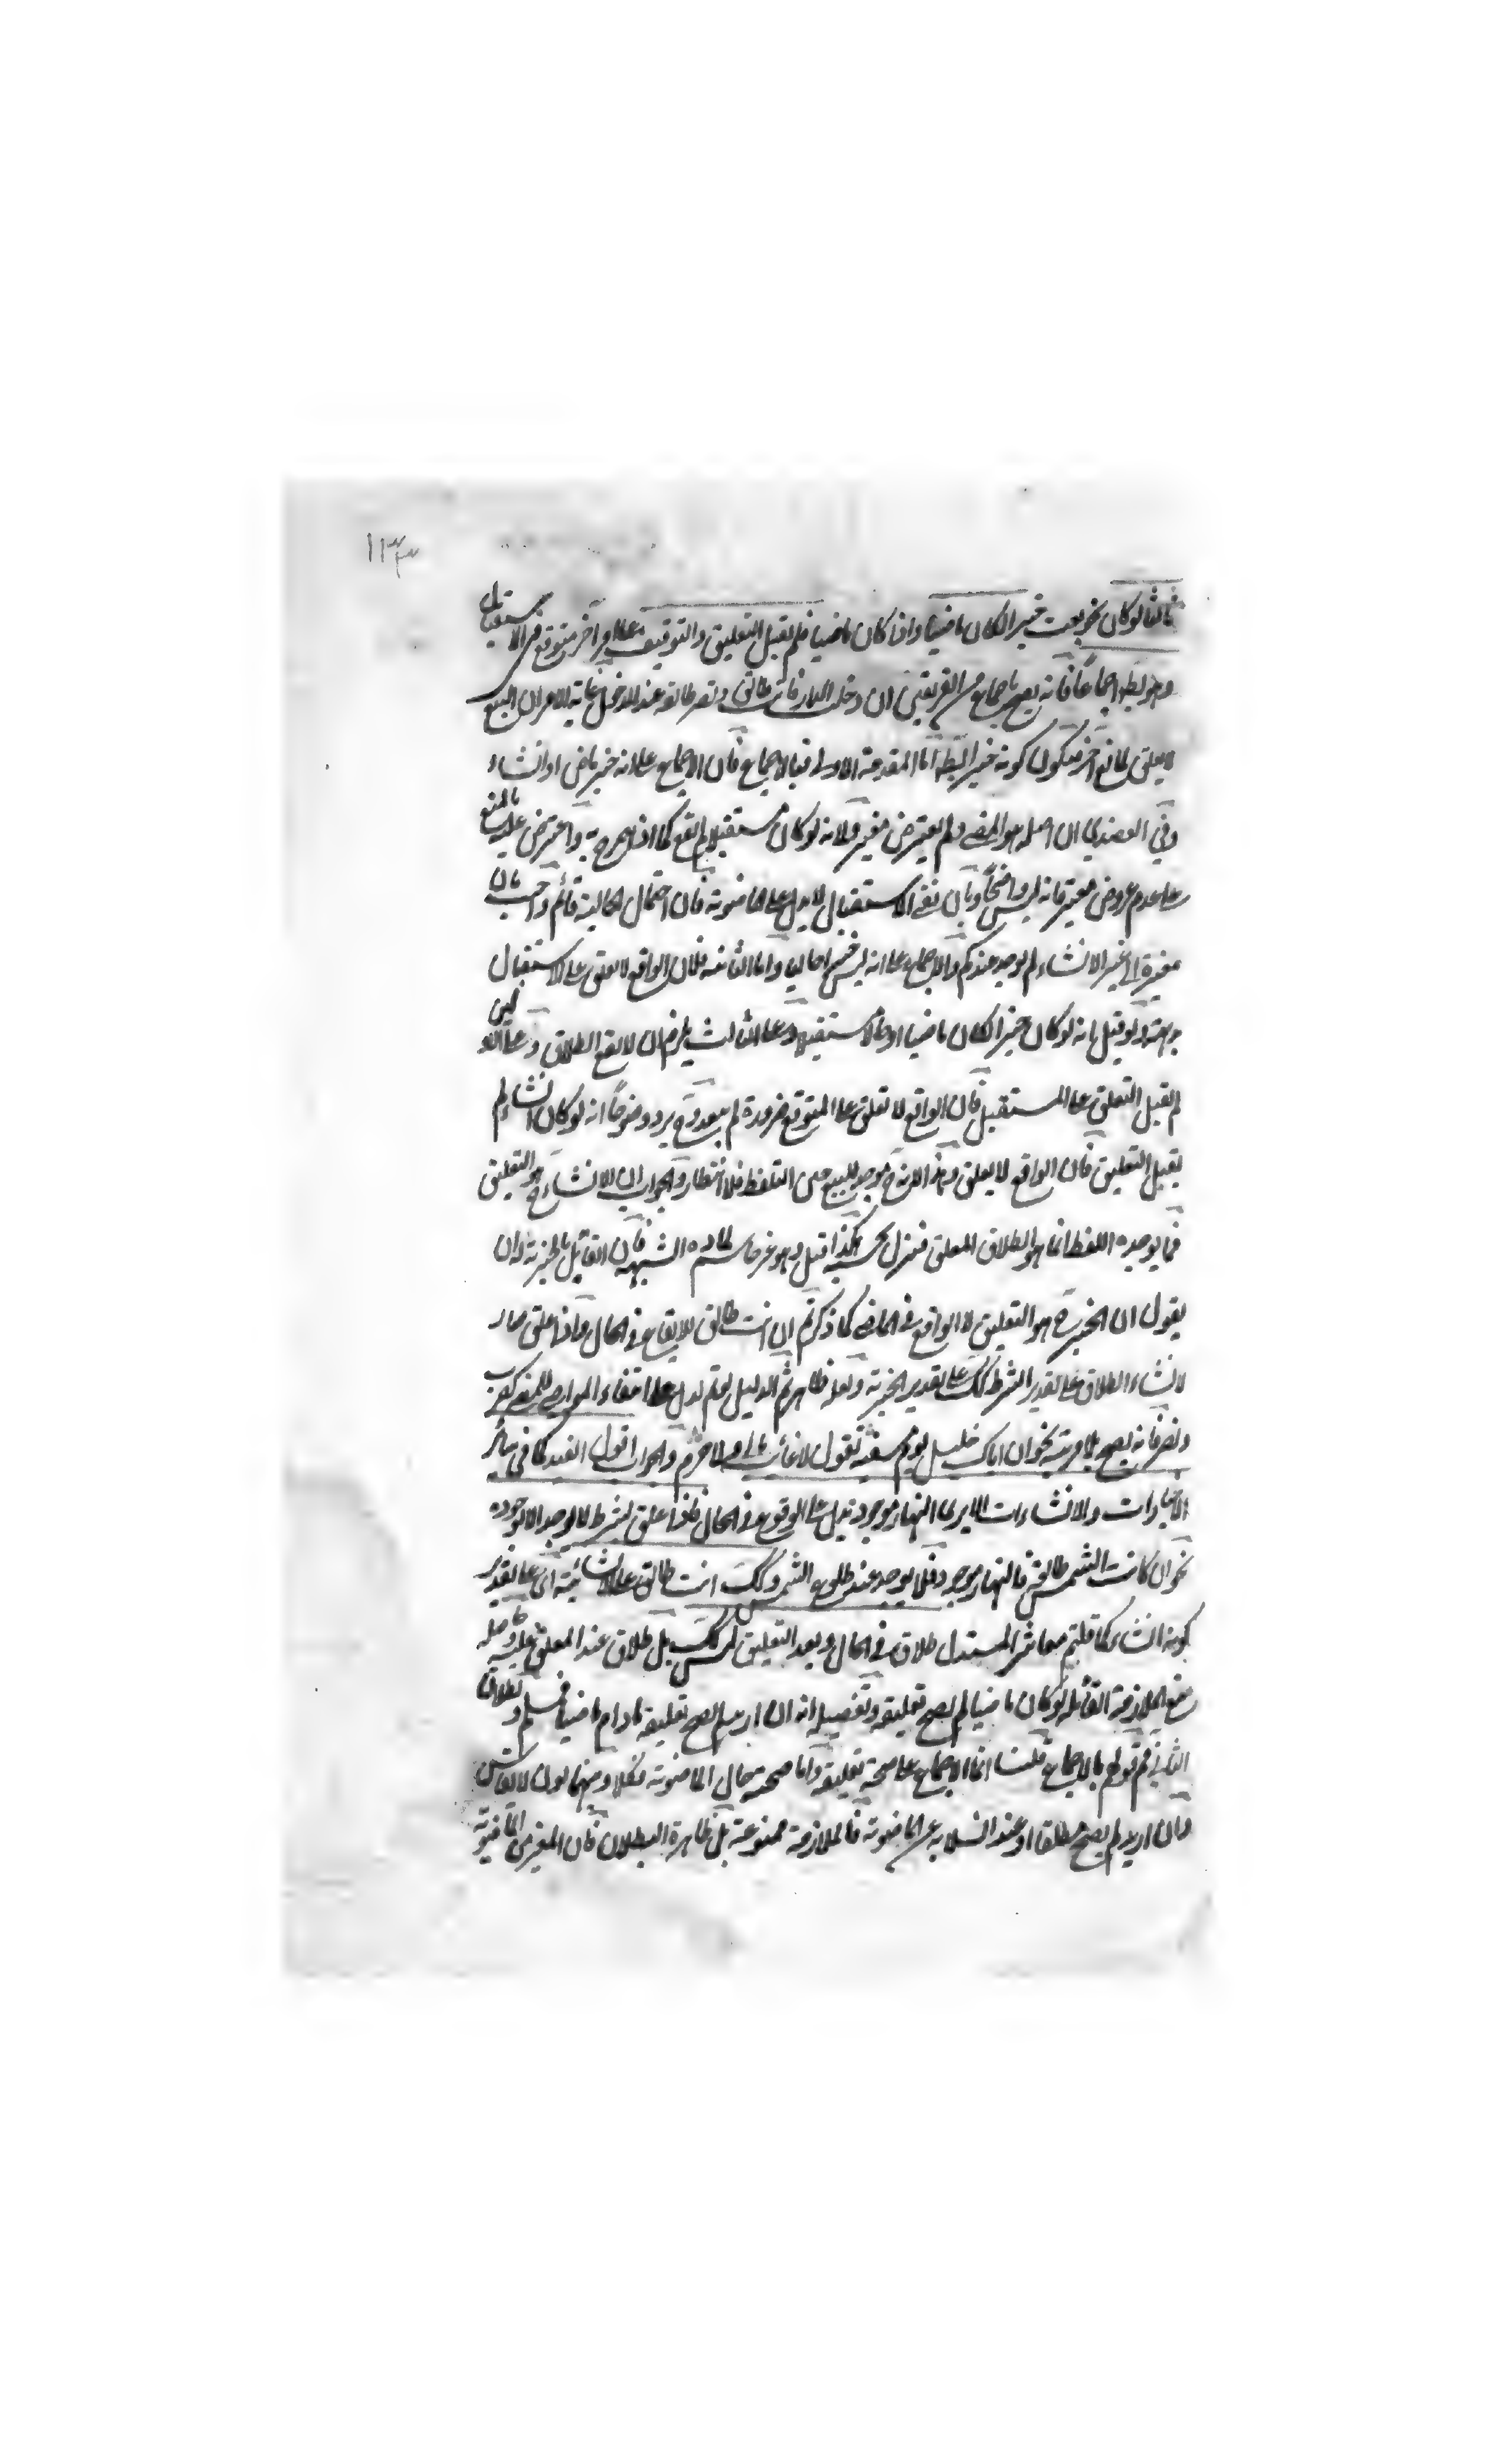 ١١٣
ثالثا لو كان نحو بعت خبرا لكان ماضيا واذا كان ماضيا فلم يقبل التعليق والتوقيف على امر آخر متوقع في الاستقبال
وهو بط اجماعا فانه يصح باجماع من الفريقين ان دخلت الدار فانت طالق وتصير طالقة عند الدخول غاية الامر ان البيع
لا يعلق لمانع آخر فيكون كونه خبرا بط اما المقدمة الاولى فبالاجماع فان الاجماع على انه خبر ماض او انشاء
وفي العضدي ان اصله هو المضي ولم يعترض مغير ولانه لو كان مستقبلا لم يقع كما اذا صرح به واعترض عليه بالمنع
على عدم عروض مغير فانه ليس واضحا وبان نفي الاستقبال لا يدل على الماضوية فان احتمال الحالية قائم واجيب بان
مغيره الى غير الانشاء لم يوجد عندكم والاجماع على انه ليس خبرا حاليا واما الثانية فلان الواقع لا يعلق على الاستقبال
لو قيل بانه لو كان خبرا لكان ماضيا او حالا او مستقبلا وعلى الثالث يلزم ان لا يقع الطلاق وعلى الاولين
لم يقبل التعليق على المستقبل فان الواقع لا تعلق على المتوقع ضرورة لم يبعد وح يرد وضوحا انه لو كان انشاء لم
يقبل التعليق فان الواقع لا يعلق وهذا لانه ح موجد للبيع حين التلفظ فلا انتظار والجواب ان الانشاء ح هو التعليق
فما يوجده اللفظ انما هو الطلاق المعلق فينزل بحسبه هكذا قيل وهو غير حاسم لمادة الشبهة فان القائل بالخبرية له ان
يقول ان الخبر ح هو التعليق لا الواقع في الماضي كما ذكرتم ان انت طالق للايقاع في الحال واذا علق صار
لانشاء الطلاق على تقدير الشرط كك على تقدير الخبرية وبعد ظاهر ثم الدليل لو تم لدل على انتفاء الجواب للمضي كضرب
ونصر فانه يصح بلا مرية نحو ان اتاك خليل يوم مسغبة تقول لا غائب مالي ولا حرم والجواب اقول القيد كما في سائر
الاخبارات والانشاءات الا يرى النهار موجود تدل على الوقوع في الحال فاذا علق بشرط لا يوجد الا بوجوده
نحو ان كانت الشمس طالعة فالنهار موجود فلا يوجد عند طلوع الشمس وكك انت طالق على الانشائية اي على تقدير
كونه انشاء كما قلتم معاشر المستدل طلاق في الحال وبعد التعليق ليس كك بل طلاق عند المعلق عليه وحاصله
منع الملازمة القائلة لو كان ماضيا لم يصح تعليقه وتفصيله انه ان اريد لم يصح تعليقه ما دام ماضيا فمسلم وبطلان
الثاني مم قولهم بالاجماع قلنا انما الاجماع على صحة تعليقه واما صحته حال الماضوية فكلا
وان اريد لم يصح مطلقا او عند انسلابه عن الماضوية فالملازمة ممنوعة بل ظاهرة البطلان فان المغير من الماضوية